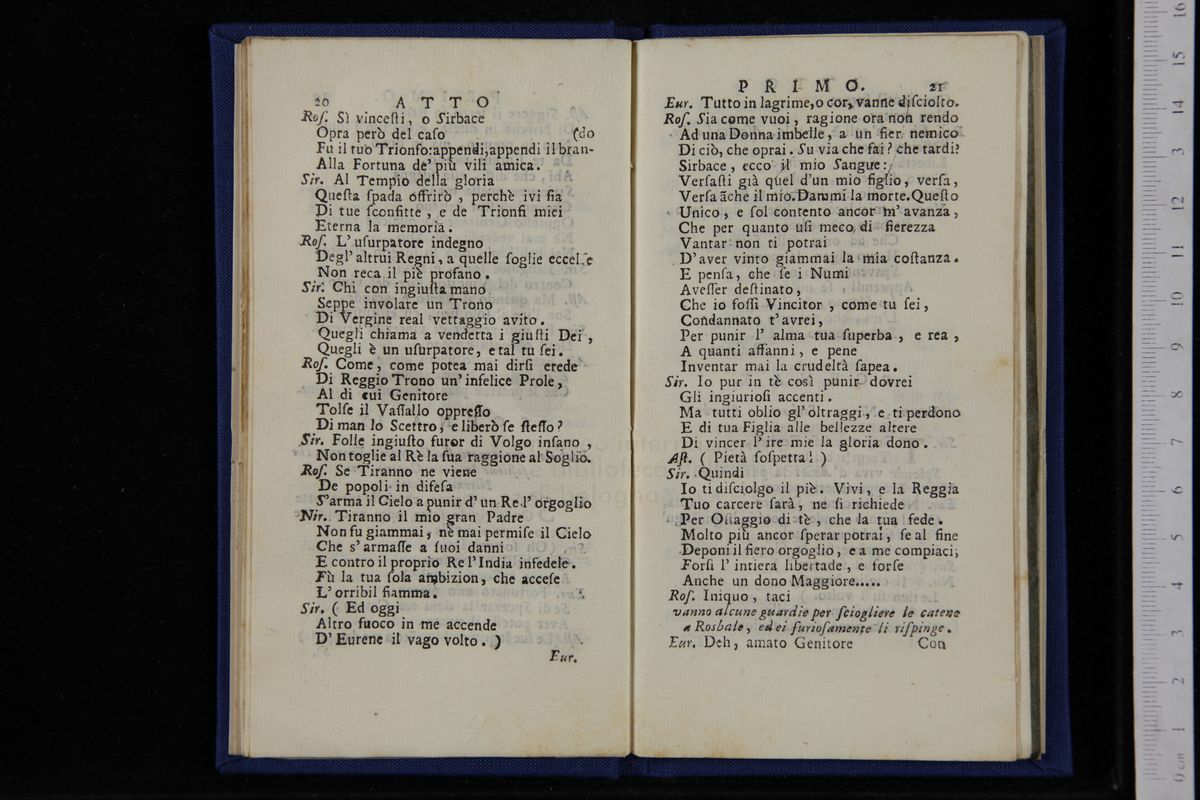 20 ATTO
Roſ. Sì vinceſti, o Sirbace
Opra però del caſo (do
Fu il tuo Trionfo:appendi,appendi il bran-
Alla Fortuna de' più vili amica.
Sir. Al Tempio della gloria
Queſta ſpada offrirò, perchè ivi ſia
Di tue ſconfitte, e de Trionfi miei
Eterna la memoria.
Roſ. L' uſurpatore indegno
Degl' altrui Regni, a quelle ſoglie eccelſe
Non reca il piè profano.
Sir. Chi con ingiuſta mano
Seppe involare un Trono
Di Vergine real vettaggio avito.
Quegli chiama a vendetta i giuſti Dei,
Quegli è un uſurpatore, e tal tu ſei.
Roſ. Come, come potea mai dirſi erede
Di Reggio Trono un' infelice Prole,
Al di cui Genitore
Tolſe il Vaſſallo oppreſſo
Di man lo Scettro, e liberò ſe ſteſſo?
Sir. Folle ingiuſto furor di Volgo inſano,
Non toglie al Rè la ſua raggione al Soglio.
Roſ. Se Tiranno ne viene
De popoli in difeſa
S'arma il Cielo a punir d' un Re l' orgoglio
Nir. Tiranno il mio gran Padre
Non fu giammai, nè mai permiſe il Cielo
Che s' armaſſe a ſuoi danni
E contro il proprio Re l' India infedele.
Fù la tua ſola ambizion, che acceſe
L' orribil fiamma.
Sir. ( Ed oggi
Altro fuoco in me accende
D' Eurene il vago volto. )
Eur.
PRIMO. 21
Eur. Tutto in lagrime,o cor, vanne diſciolto.
Roſ. Sia come vuoi, ragione ora non rendo
Ad una Donna imbelle, a un fier nemico
Di ciò, che oprai. Su via che fai? che tardi?
Sirbace, ecco il mio Sangue:
Verſaſti già quel d'un mio figlio, verſa,
Verſa āche il mio.Dammi la morte.Queſto
Unico, e ſol contento ancor m' avanza,
Che per quanto uſi meco di fierezza
Vantar non ti potrai
D' aver vinto giammai la mia coſtanza.
E penſa, che ſe i Numi
Aveſſer deſtinato,
Che io foſſi Vincitor, come tu ſei,
Condannato t' avrei,
Per punir l' alma tua ſuperba, e rea,
A quanti affanni, e pene
Inventar mai la crudeltà ſapea.
Sir. Io pur in tè così punir dovrei
Gli ingiurioſi accenti.
Ma tutti oblio gl' oltraggi, e ti perdono
E di tua Figlia alle bellezze altere
Di vincer l' ire mie la gloria dono.
Aſt. ( Pietà ſoſpetta! )
Sir. Quindi
Io ti diſciolgo il piè. Vivi, e la Reggia
Tuo carcere ſarà, ne ſi richiede
Per Oſtaggio di tè, che la tua fede.
Molto più ancor ſperar potrai, ſe al fine
Deponi il fiero orgoglio, e a me compiaci;
Forſi l' intiera libertade, e forſe
Anche un dono Maggiore.....
Roſ. Iniquo, taci
vanno alcune guardie per ſciogliere le catene
a Rosbale, ed ei furioſamente li riſpinge.
Eur. Deh, amato Genitore Con